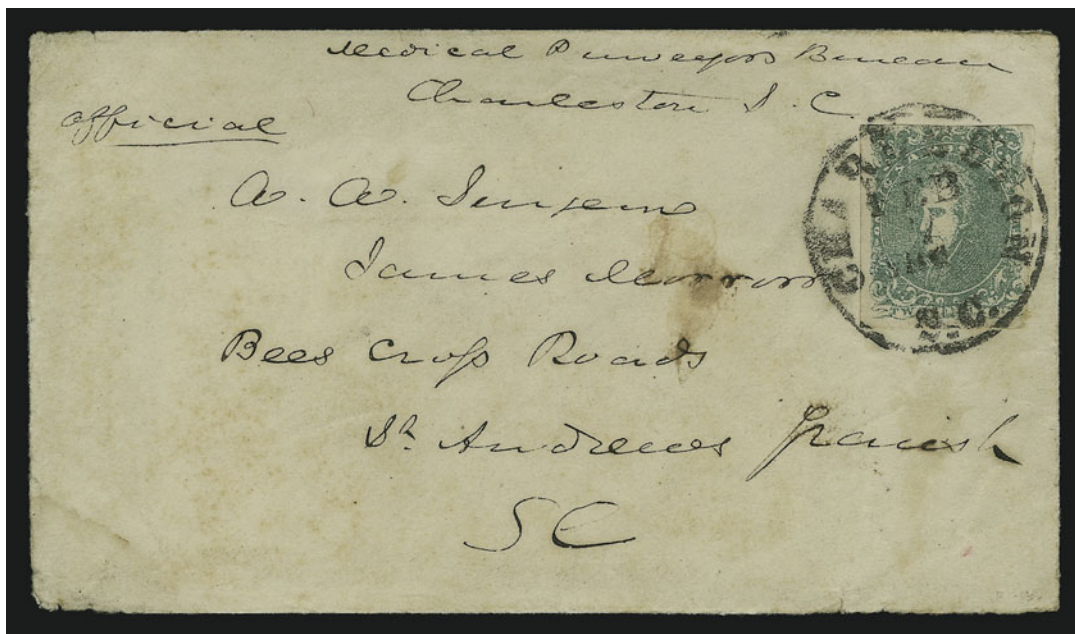 Medical Purveyors Bureau
Charleston S. C.
official
A. A. Surgeon
James Morrow
Bees Cross Roads
St. Andrews Parish
S C
CHARLESTON
FEB
S.C.